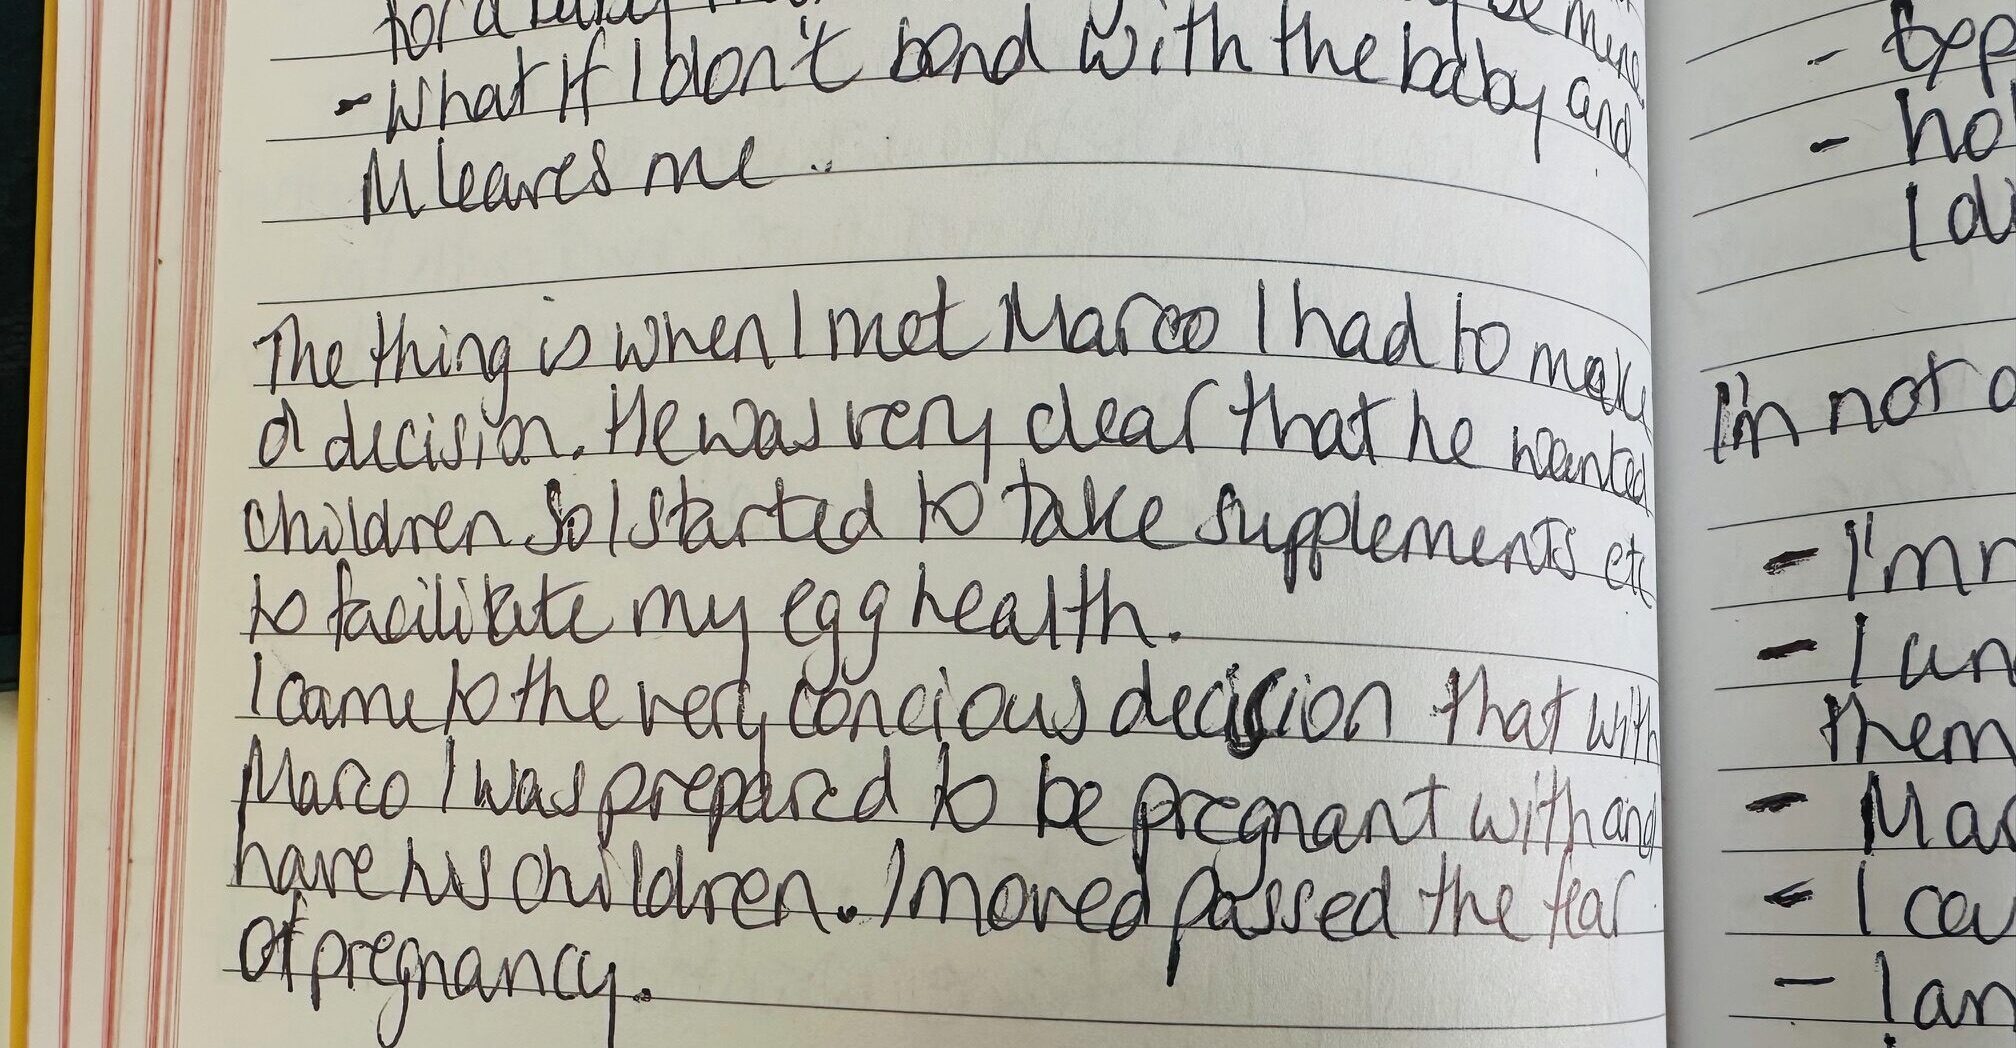 for a baby be mine
- What if I don't bond with the baby and
M leaves me ..
The thing is when I met Marco I had to make
a decision. He was very clear that he wanted
children so I started to take supplements etc
to facilitate my egg health.
I came to the very concious decision that with
Marco I was prepared to be pregnant with and
have his children. I moved passed the fear
of pregnancy.
-
- ho
I di
I'm not a
- I'm n
- I un
them
- Mar
- I cou
- I am